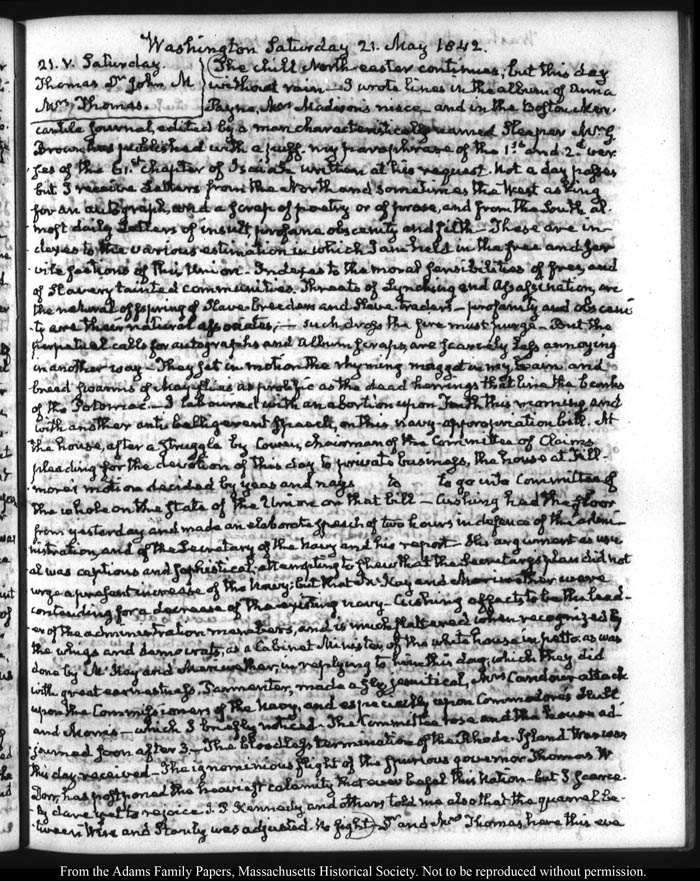 Washington Saturday 21. May 1842.
21. V. Saturday. The chill North-easter continues, but this day
Thomas Dr John M without rain— I wrote lines in the album of Anna
Mrs Thomas. Payne, Mrs Madison's niece— and in the Boston Mer-
cantile Journal, edited by a man characteristically named Sleeper Mr G.
Brown has published with a puff, my paraphrase of the 1st and 2d ver-
ses of the 61st chapter of Isaiah written at his request. Not a day passes
but I receive Letters from the North and sometimes the West asking
for an autograph, and a scrap of poetry or of prose, and from the South al-
most daily Letters of insult profane obscenity and filth— These are in-
dexes to the various estimation in which I am held in the free and ser-
vile sections of this Union— Indexes to the moral sensibilities of free, and
of Slavery tainted communities. Threats of Lynching and Assassination, are
the natural offspring of Slave-breeders and Slave-traders— profanity and obsceni-
ty are their natural associates;— such dross the fire must purge— But the
perpetual calls for autographs and Album scraps, are scarcely less annoying
in another way— They set in motion the rhyming maggot in my brain and
breed swarms of May flies as prolific as the dead herrings that line the banks
of the Potomac— I laboured with an abortion upon Truth this morning and
with another anti belligerent Speech, on this navy-appropriation bill. At
the house, after a struggle by Cowen, chairman of the Committee of Claims
pleading for the devotion of this day to private business, the house at Fill-
more's motion decided by yeas and nays to to go into Committee of
the whole on the State of the Union on that bill— Cushing had the floor
from yesterday and made an elaborate speech of two hours in defence of the admi-
nistration, and of the Secretary of the Navy and his report— His argument as usu-
al was captious and sophistical; attempting to shew that the Secretary's plan did not
urge a present increase of the Navy; but that Mc Kay and Meriwether were
contending for a decrease of the existing navy— Cushing affects to be the lead-
er of the administration members, and is much flattered when recognized by
the whigs and democrats, as a Cabinet Minister of the white house in petto: as was
done by Mc Kay and Meriwether, in replying to him this day, which they did
with great earnestness, Parmenter, made a sly, jesuitical, Mrs Candour attack
upon the Commissioners of the Navy, and especially upon Commodores Hull
and Morris— which I briefly noticed. The Committee rose and the house ad-
journed soon after 3.— The bloodless termination of the Rhode-Island War was
this day received— The ignominious flight of the spurious governor Thomas W
Dorr, has postponed the heaviest calamity that ever befel this Nation— but I scarce-
ly dare yet to rejoice. J. P. Kennedy and others told me also that the quarrel be-
tween Wise and Stanly was adjusted. No fight) Dr and Mrs Thomas, have this eve
From the Adams Family Papers, Massachusetts Historical Society. Not to be reproduced without permission.